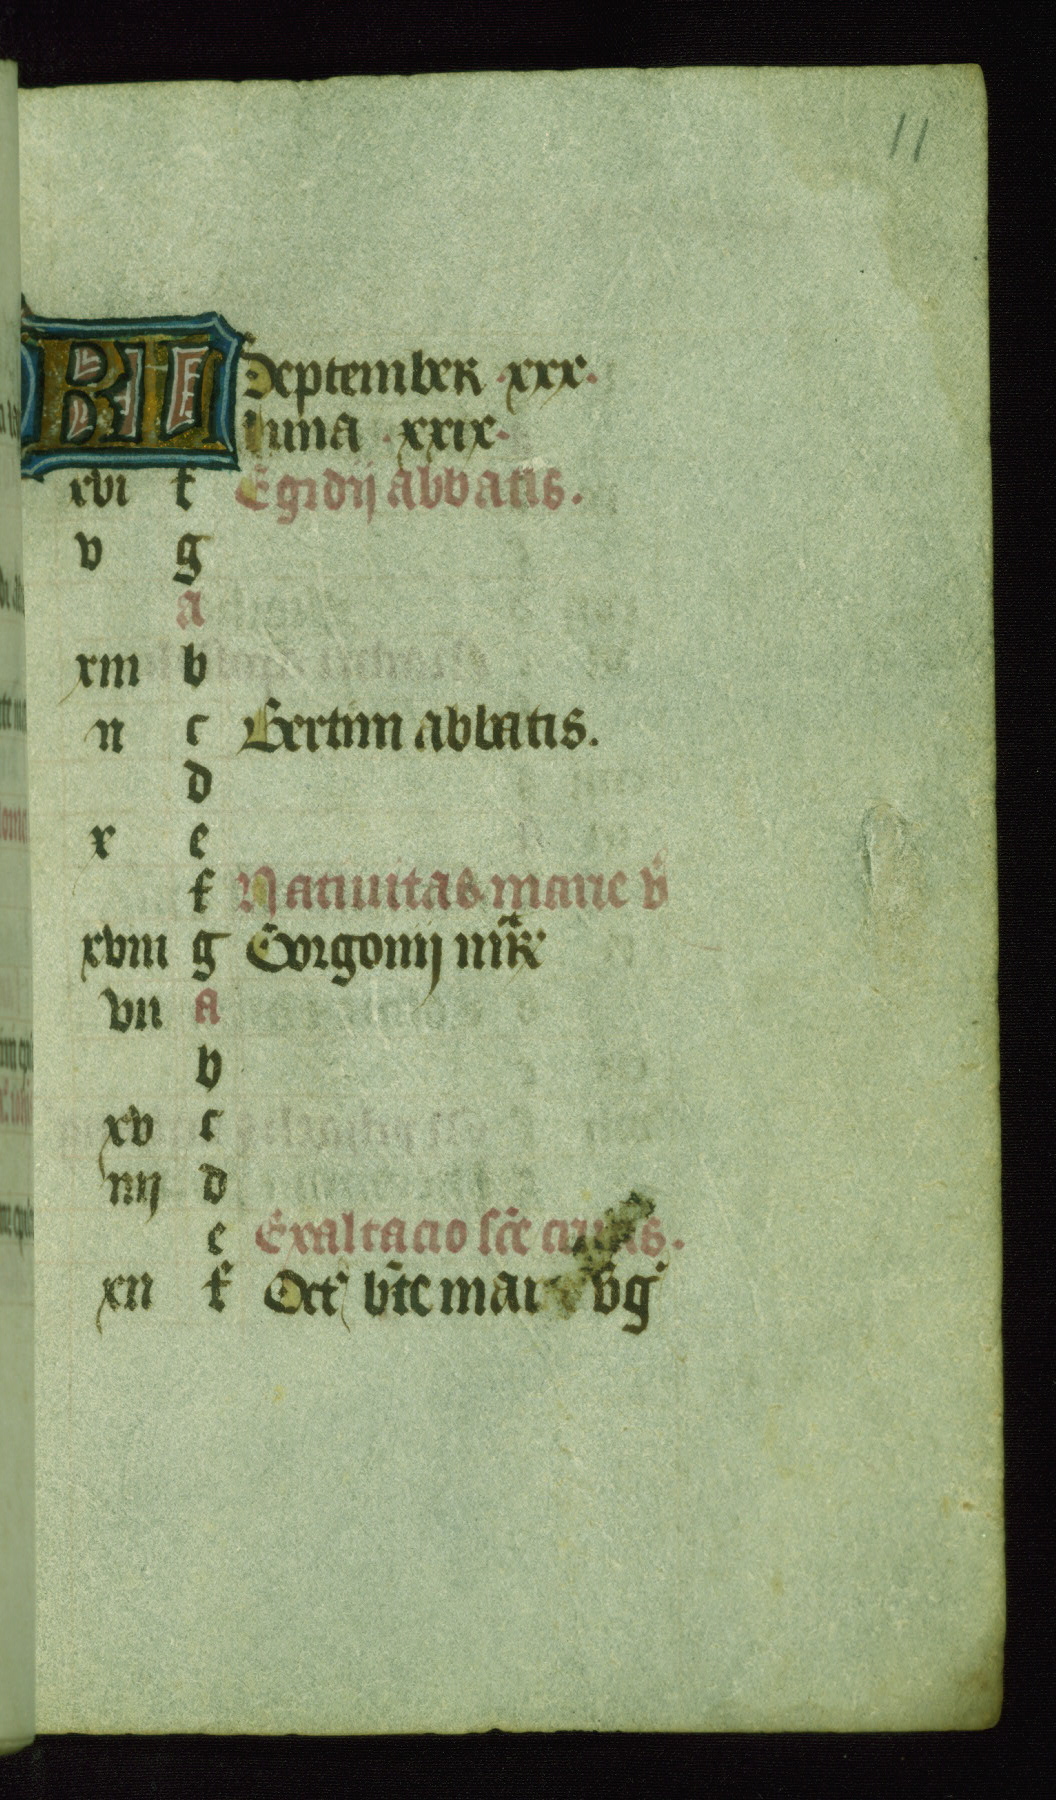 11
KL September · xxx ·
luna · xxix ·
xvi f Egidij abbatis.
v g
a
xiii b
ii c Bertini abbatis.
d
x e
f Natiuitas marie v̄
xviii g Gorgonij mr̄
vii a
b
xv c
iiij d
e Exaltacio sc̄e crucis.
xii f Oct' bt̄e marie vḡ